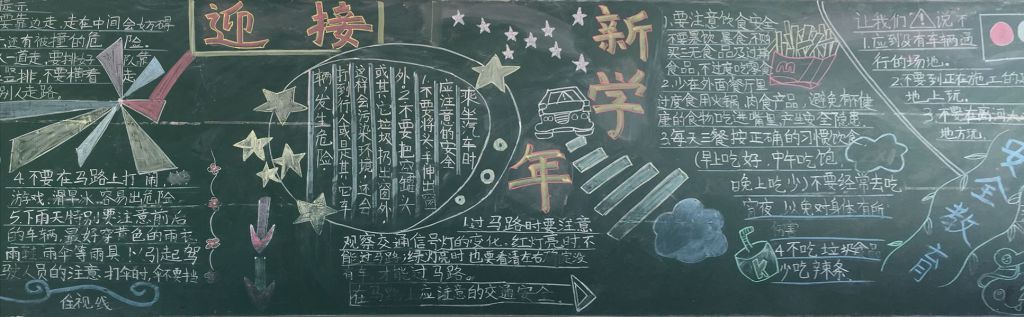 提示
要靠边走,走在中间会妨碍
还有被撞的危险.
一直走,要排好
竖排,不要横着走
别人走路.
4.不要在马路上打闹,
游戏,滑旱冰,容易出危险
5.下雨天特别要注意前后
的车辆,最好穿黄色的雨衣
雨鞋,雨伞等雨具!引起驾
驶人员的注意.打伞时,伞不要挡
住视线
迎接
新学年
乘坐汽车时
应注意的安全
1.不要将头手伸出窗
外.2.不要把罐头
或其它垃圾扔出窗外
这样会污染环境,还会
打到行人或是其它车
辆,发生危险.
1.过马路时要注意
观察交通信号灯的变化,红灯亮时不
能过马路,绿灯亮时也要看清左右确定没
有车才能过马路.
在马路上应注意的交通安全
1.要注意饮食安全
不要暴饮暴食,不购
买三无食品及过期
食品,不过度吃零食
2.少在外面餐厅里
过度食用火锅,肉食产品,避免有健
康的食物吃进嘴里产生安全隐患
3.每天三餐按正确的习惯饮食
(早上吃好,中午吃饱
晚上吃少)不要经常去吃
宵夜,以免对身体有所
伤害
4.不吃垃圾食品
少吃辣条
让我们 说不
1.应到没有车辆通
行的场地.
2.不要到正在施工的工
地上玩.
3.不要在离马
地方玩.
安全教育